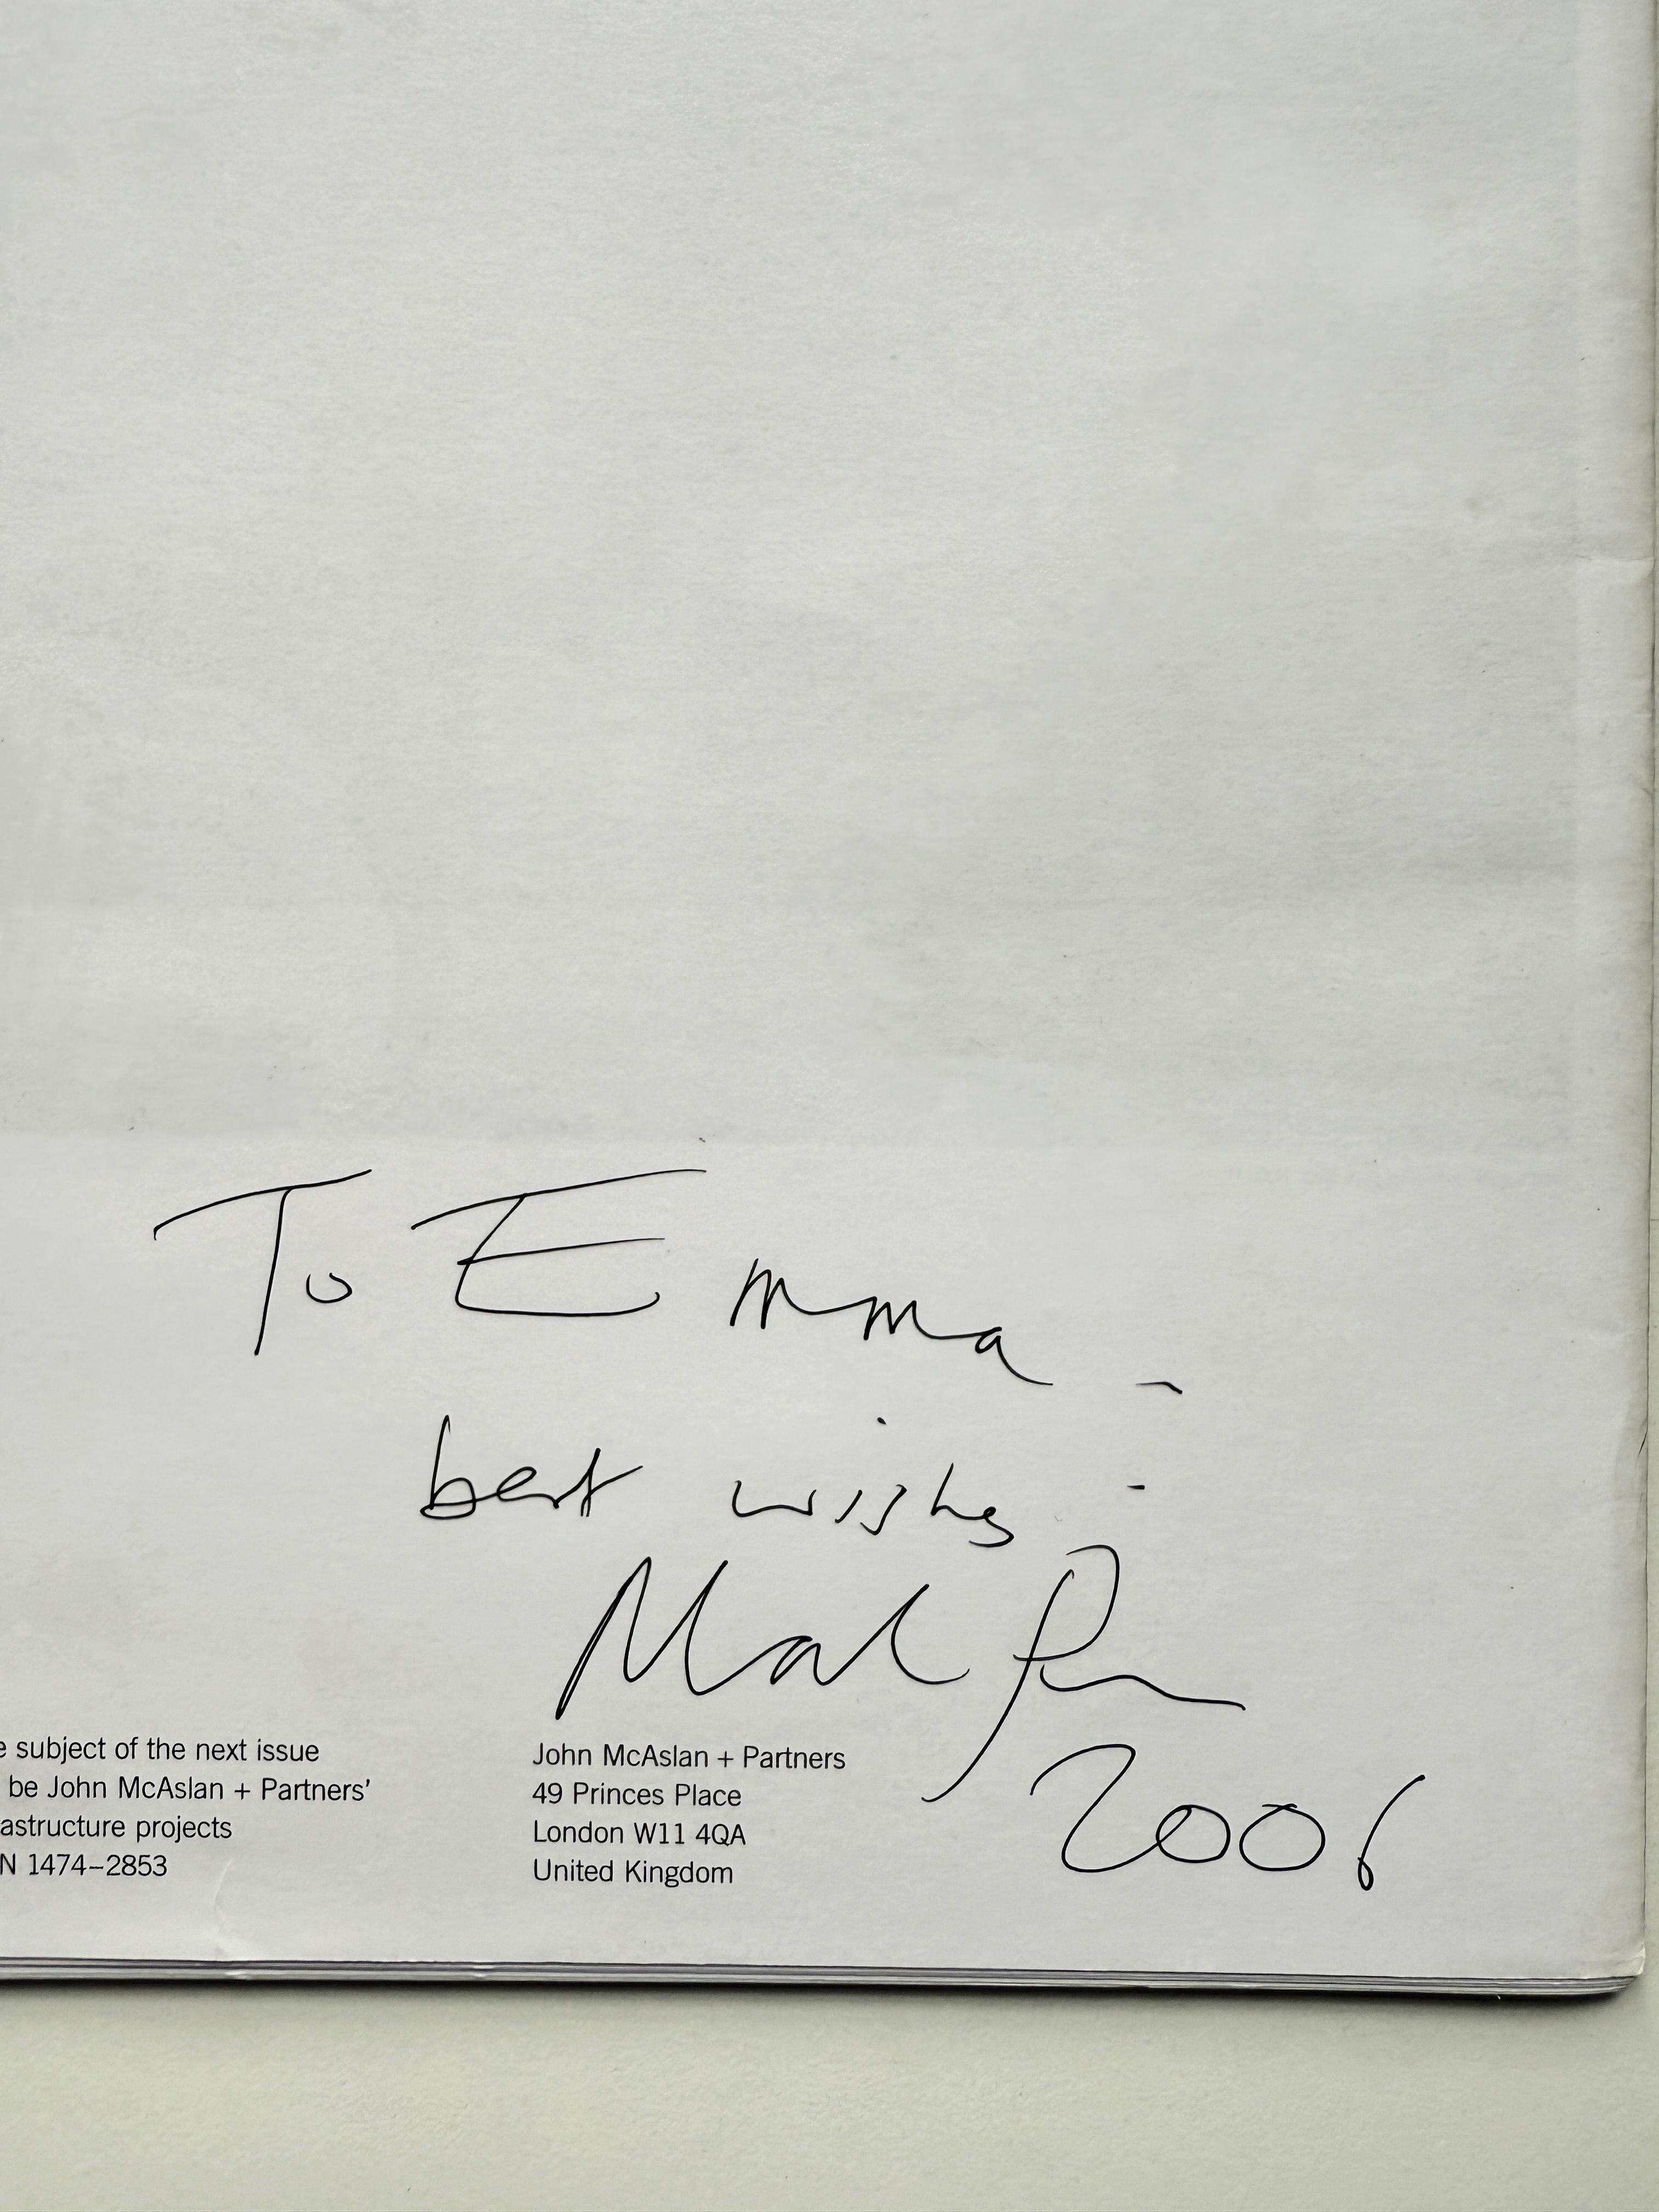 To Emma -
best wishes -
2006
e subject of the next issue
be John McAslan + Partners'
astructure projects
N 1474–2853
John McAslan + Partners
49 Princes Place
London W11 4QA
United Kingdom